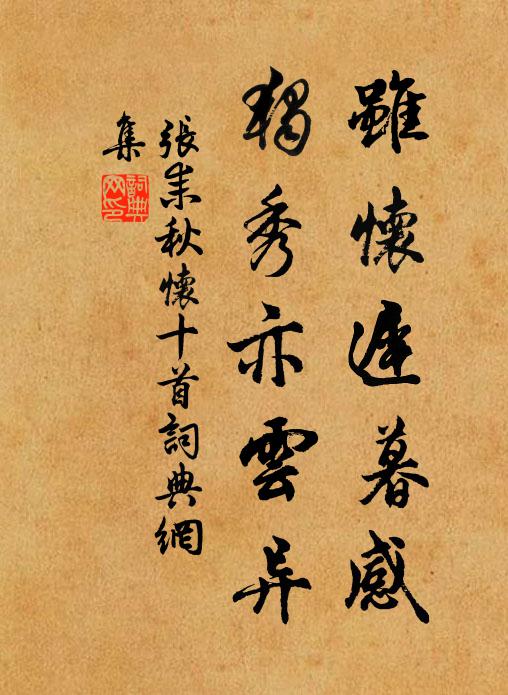 雖懷遲暮感
獨秀亦雲异
張耒秋懷十首詞典網
集
詞典
网印